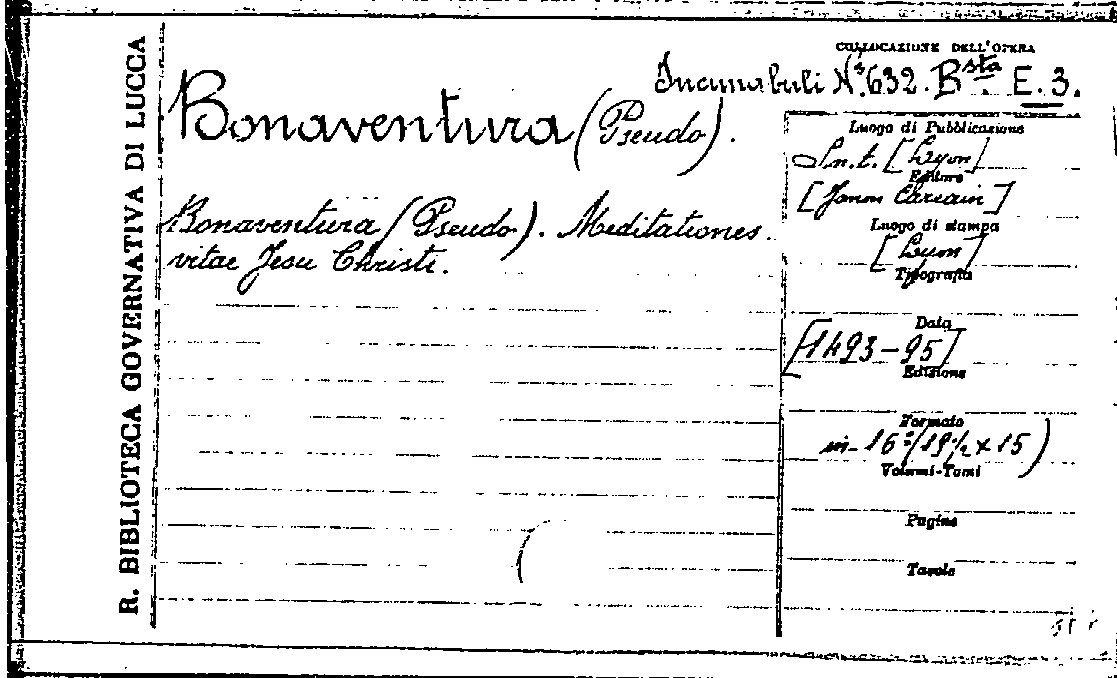 R. BIBLIOTECA GOVERNATIVA DI LUCCA
COLLOCAZIONE DELL'OPERA
Incunabuli N.° 632. Bsta. E. 3.
Bonaventura (Pseudo).
Bonaventura (Pseudo). Meditationes
vitae Jesu Christi.
Luogo di Pubblicazione
S.n.t. [Lyon]
Editore
[Jannon Carcain]
Luogo di stampa
[Lyon]
Tipografia
Data
[1493-95]
Edizione
Formato
in-16° (19½ x 15)
Volumi-Tomi
Pagine
Tavole